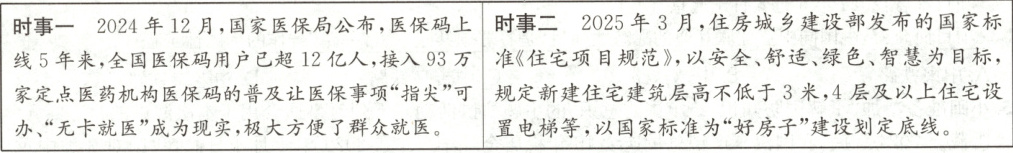 时事一 2024年12月,国家医保局公布,医保码上
线5年来,全国医保码用户已超12亿人,接入93万
家定点医药机构医保码的普及让医保事项“指尖”可
办、“无卡就医”成为现实,极大方便了群众就医。
时事二 2025年3月,住房城乡建设部发布的国家标
准《住宅项目规范》,以安全、舒适、绿色、智慧为目标,
规定新建住宅建筑层高不低于3米,4层及以上住宅设
置电梯等,以国家标准为“好房子”建设划定底线。